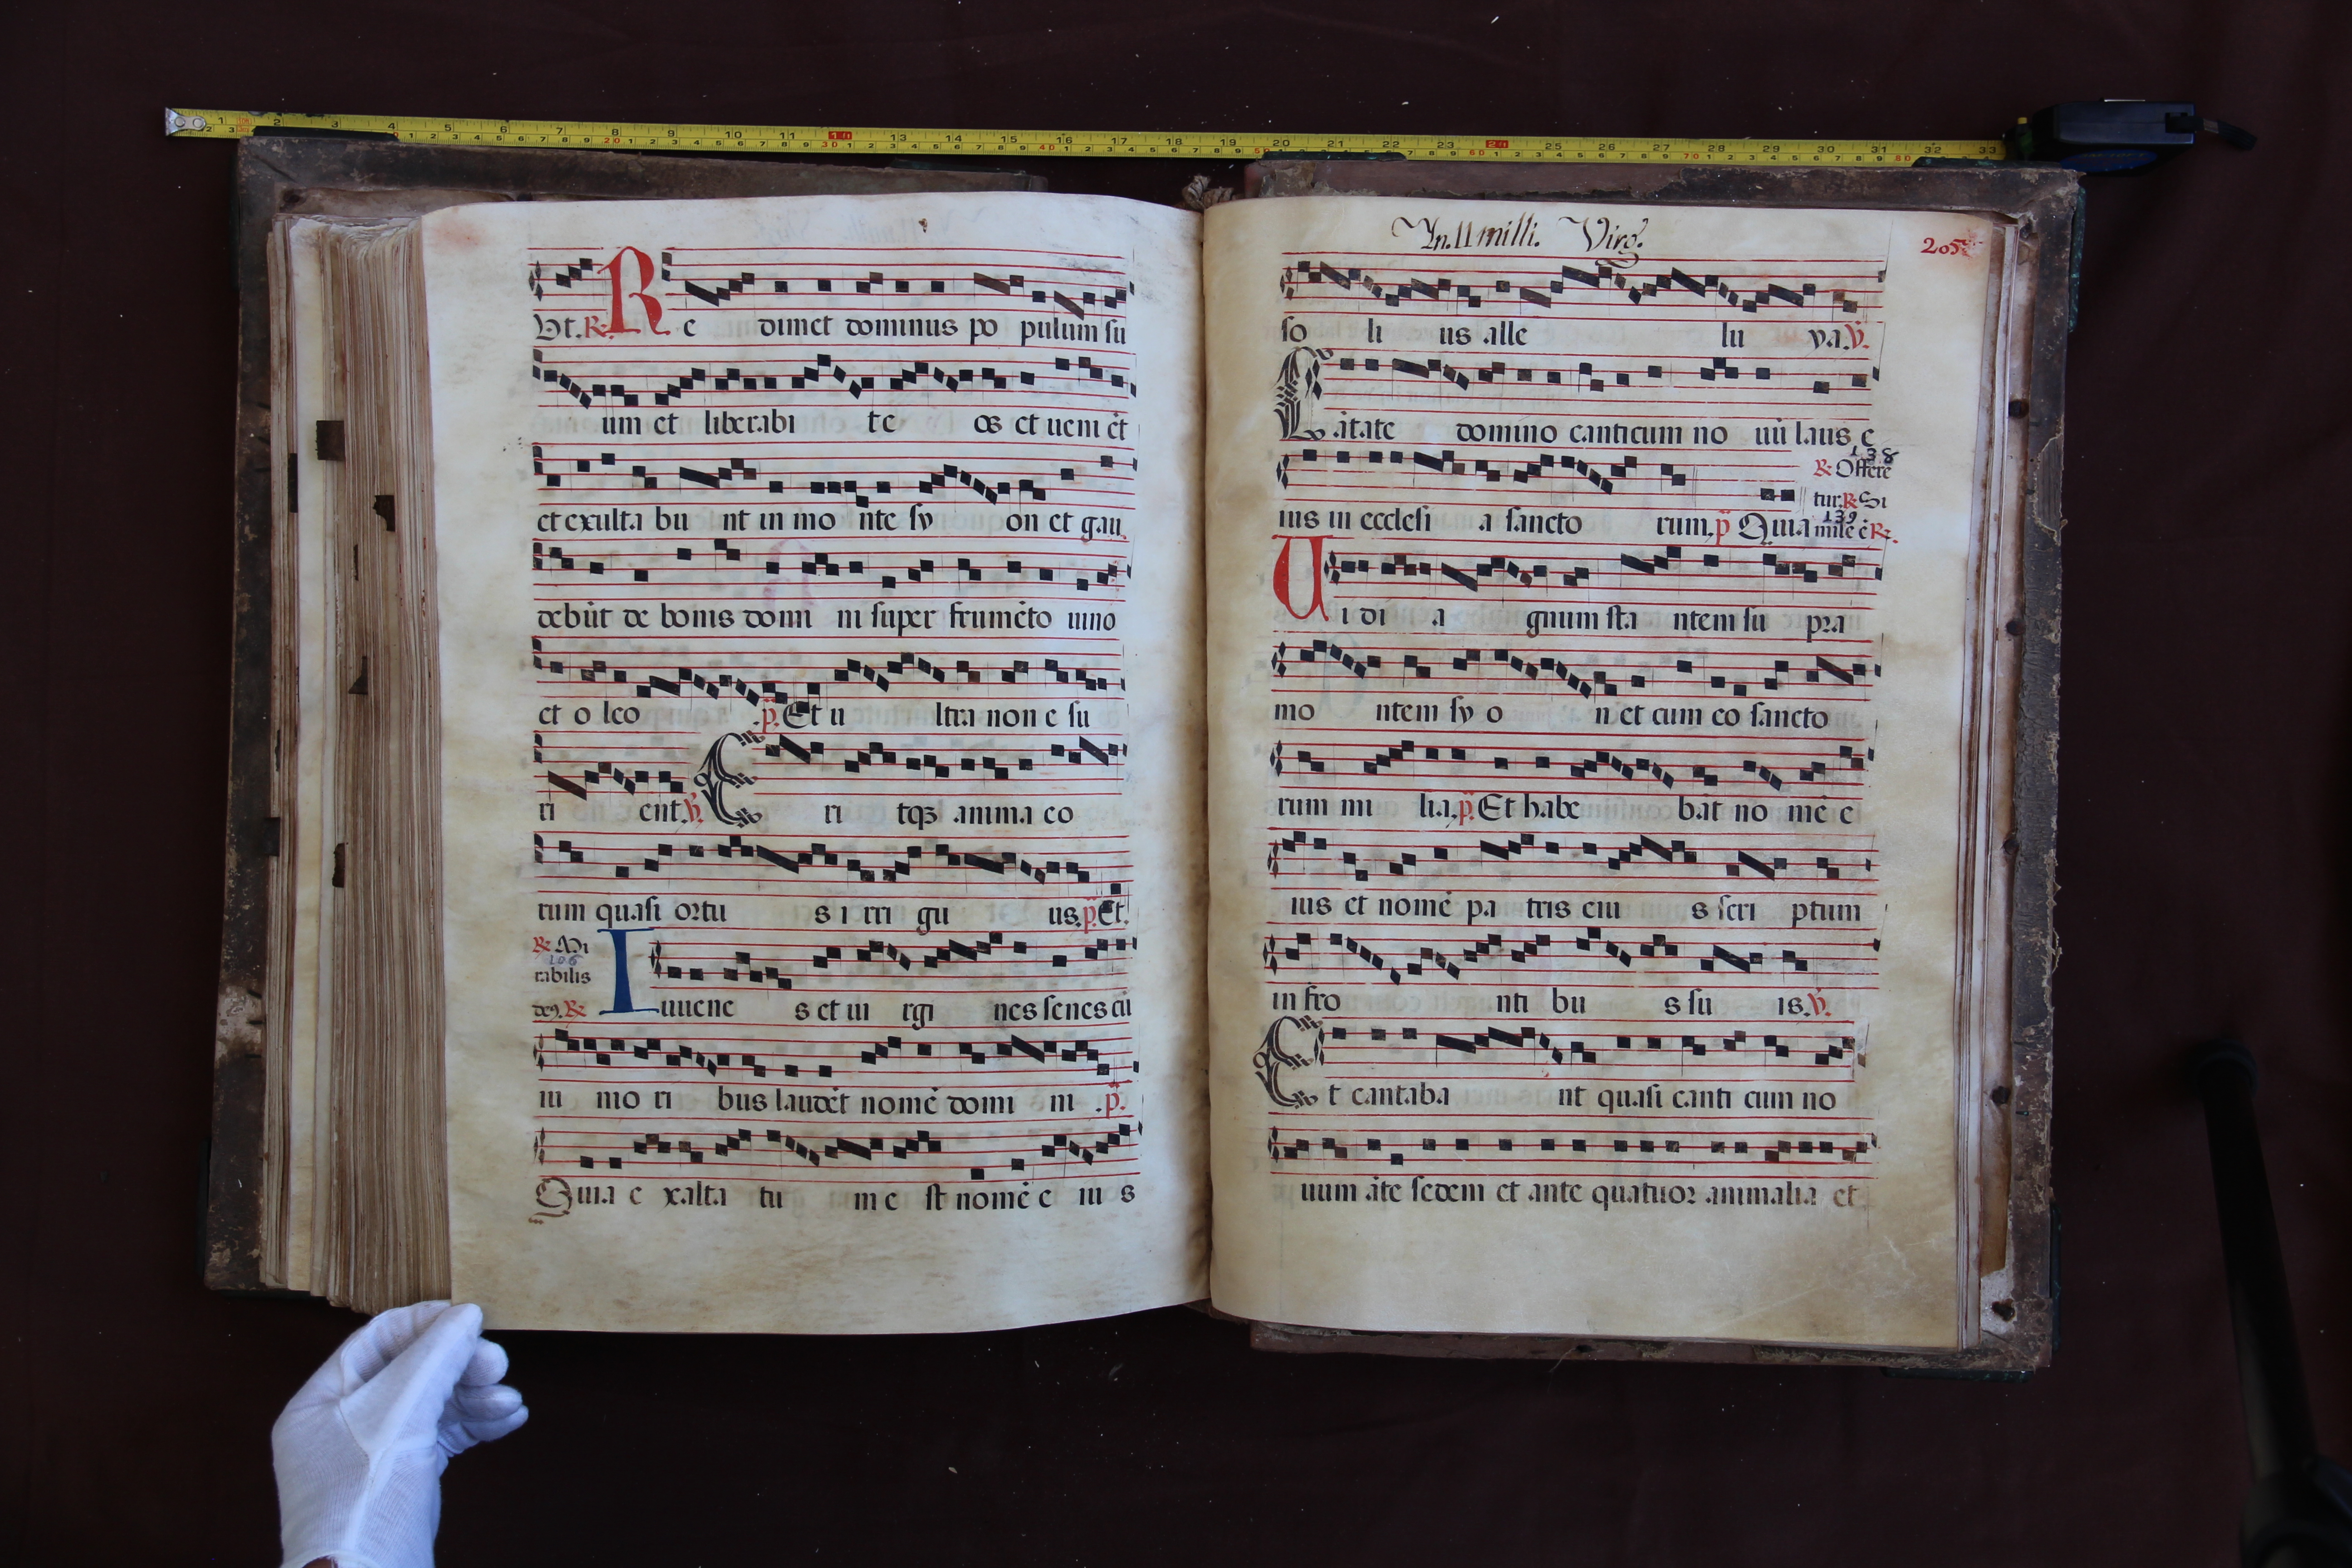 Ut. R. Re dimet dominus po pulum su
um et liberabi t e os et ueniēt
et exulta bu nt in mo nte sy on et gau
debūt de bonis domi ni super frumēto uino
et o leo .p. Et u ltra non e su
ri ent. V. E ri tqз anima eo
rum quasi ortu s i rri gu us. p. Et.
R. Mi
106
rabilis
deꝰ. R.
I uuene s et ui rgi nes senes cū
iu mo ri bus laudēt nomē domi ni .p.
Quia e xalta tu m e st nomē e iu s
In. 11 milli. Virg.
205
so li us alle lu ya. V.
C ātate domino canticum no uū laus e
138
R. Offere
ius in ecclesi a sancto rum. p. Quia
tur. R. Si
139.
mile ē R.
U i di a gnum sta ntem su pra
mo ntem sy o n et cum eo sancto
rum mi lia. p. Et habe bāt no mē e
ius et nomē pa tris eiu s scri ptum
in fro nti bu s su is. V.
E t cantaba nt quasi canti cum no
uum āte sedem et ante quatuor animalia et